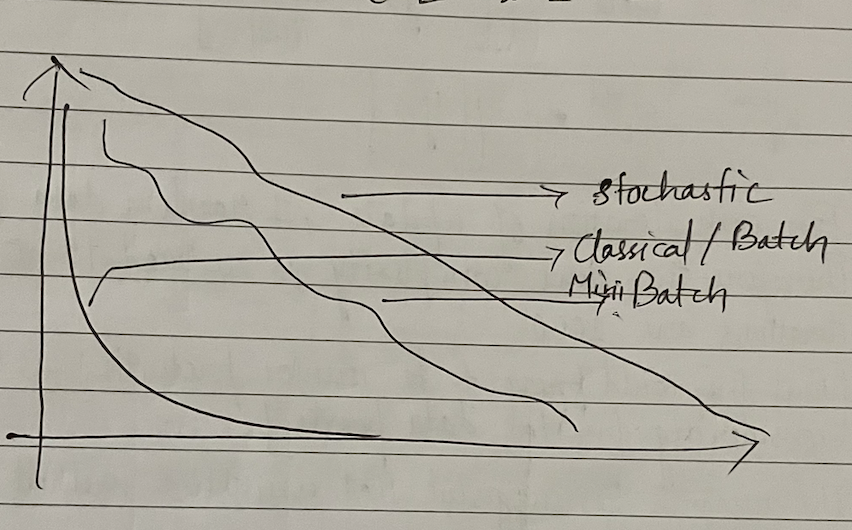 Stochastic
Classical / Batch
Mini Batch